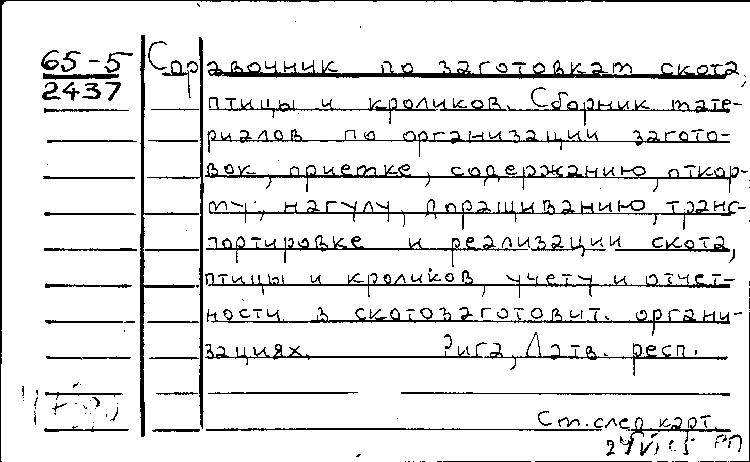 65-5
2437
Справочник по заготовкам скота,
птицы и кроликов. Сборник мате-
риалов по организации загото-
вок, приемке, содержанию, откор-
му, нагулу, доращиванию, транс-
портировке и реализации скота,
птицы и кроликов, учету и отчет-
ности в скотозаготовит. органи-
зациях. Рига, Латв. респ.
См. след. карт.